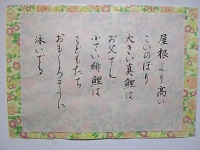 屋根より高い
こいのぼり
大きい真鯉は
お父さん
小さい緋鯉は
こどもたち
おもしろそうに
泳いでる